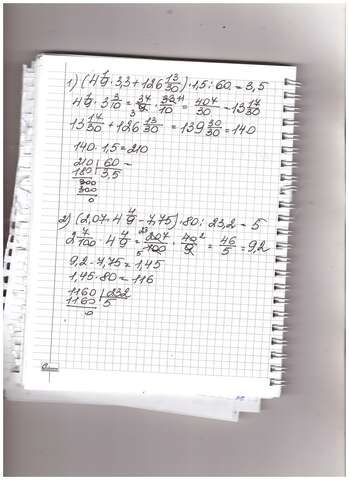 1) (4 1/9 · 3,3 + 126 13/30) · 1,5 : 60 = 3,5
4 1/9 · 3 3/10 = 37/9 · 33/10 = 407/30 = 13 17/30
3 11
13 17/30 + 126 13/30 = 139 30/30 = 140
140 · 1,5 = 210
210 | 60 =
180 3,5
300
300
0
2) (2,07 · 4 4/9 - 7,75) · 80 : 23,2 = 5
2 7/100 · 4 4/9 = 207/100 · 40/9 = 46/5 = 9,2
23 2
5
9,2 - 7,75 = 1,45
1,45 · 80 = 116
1160 | 232
1160 5
0